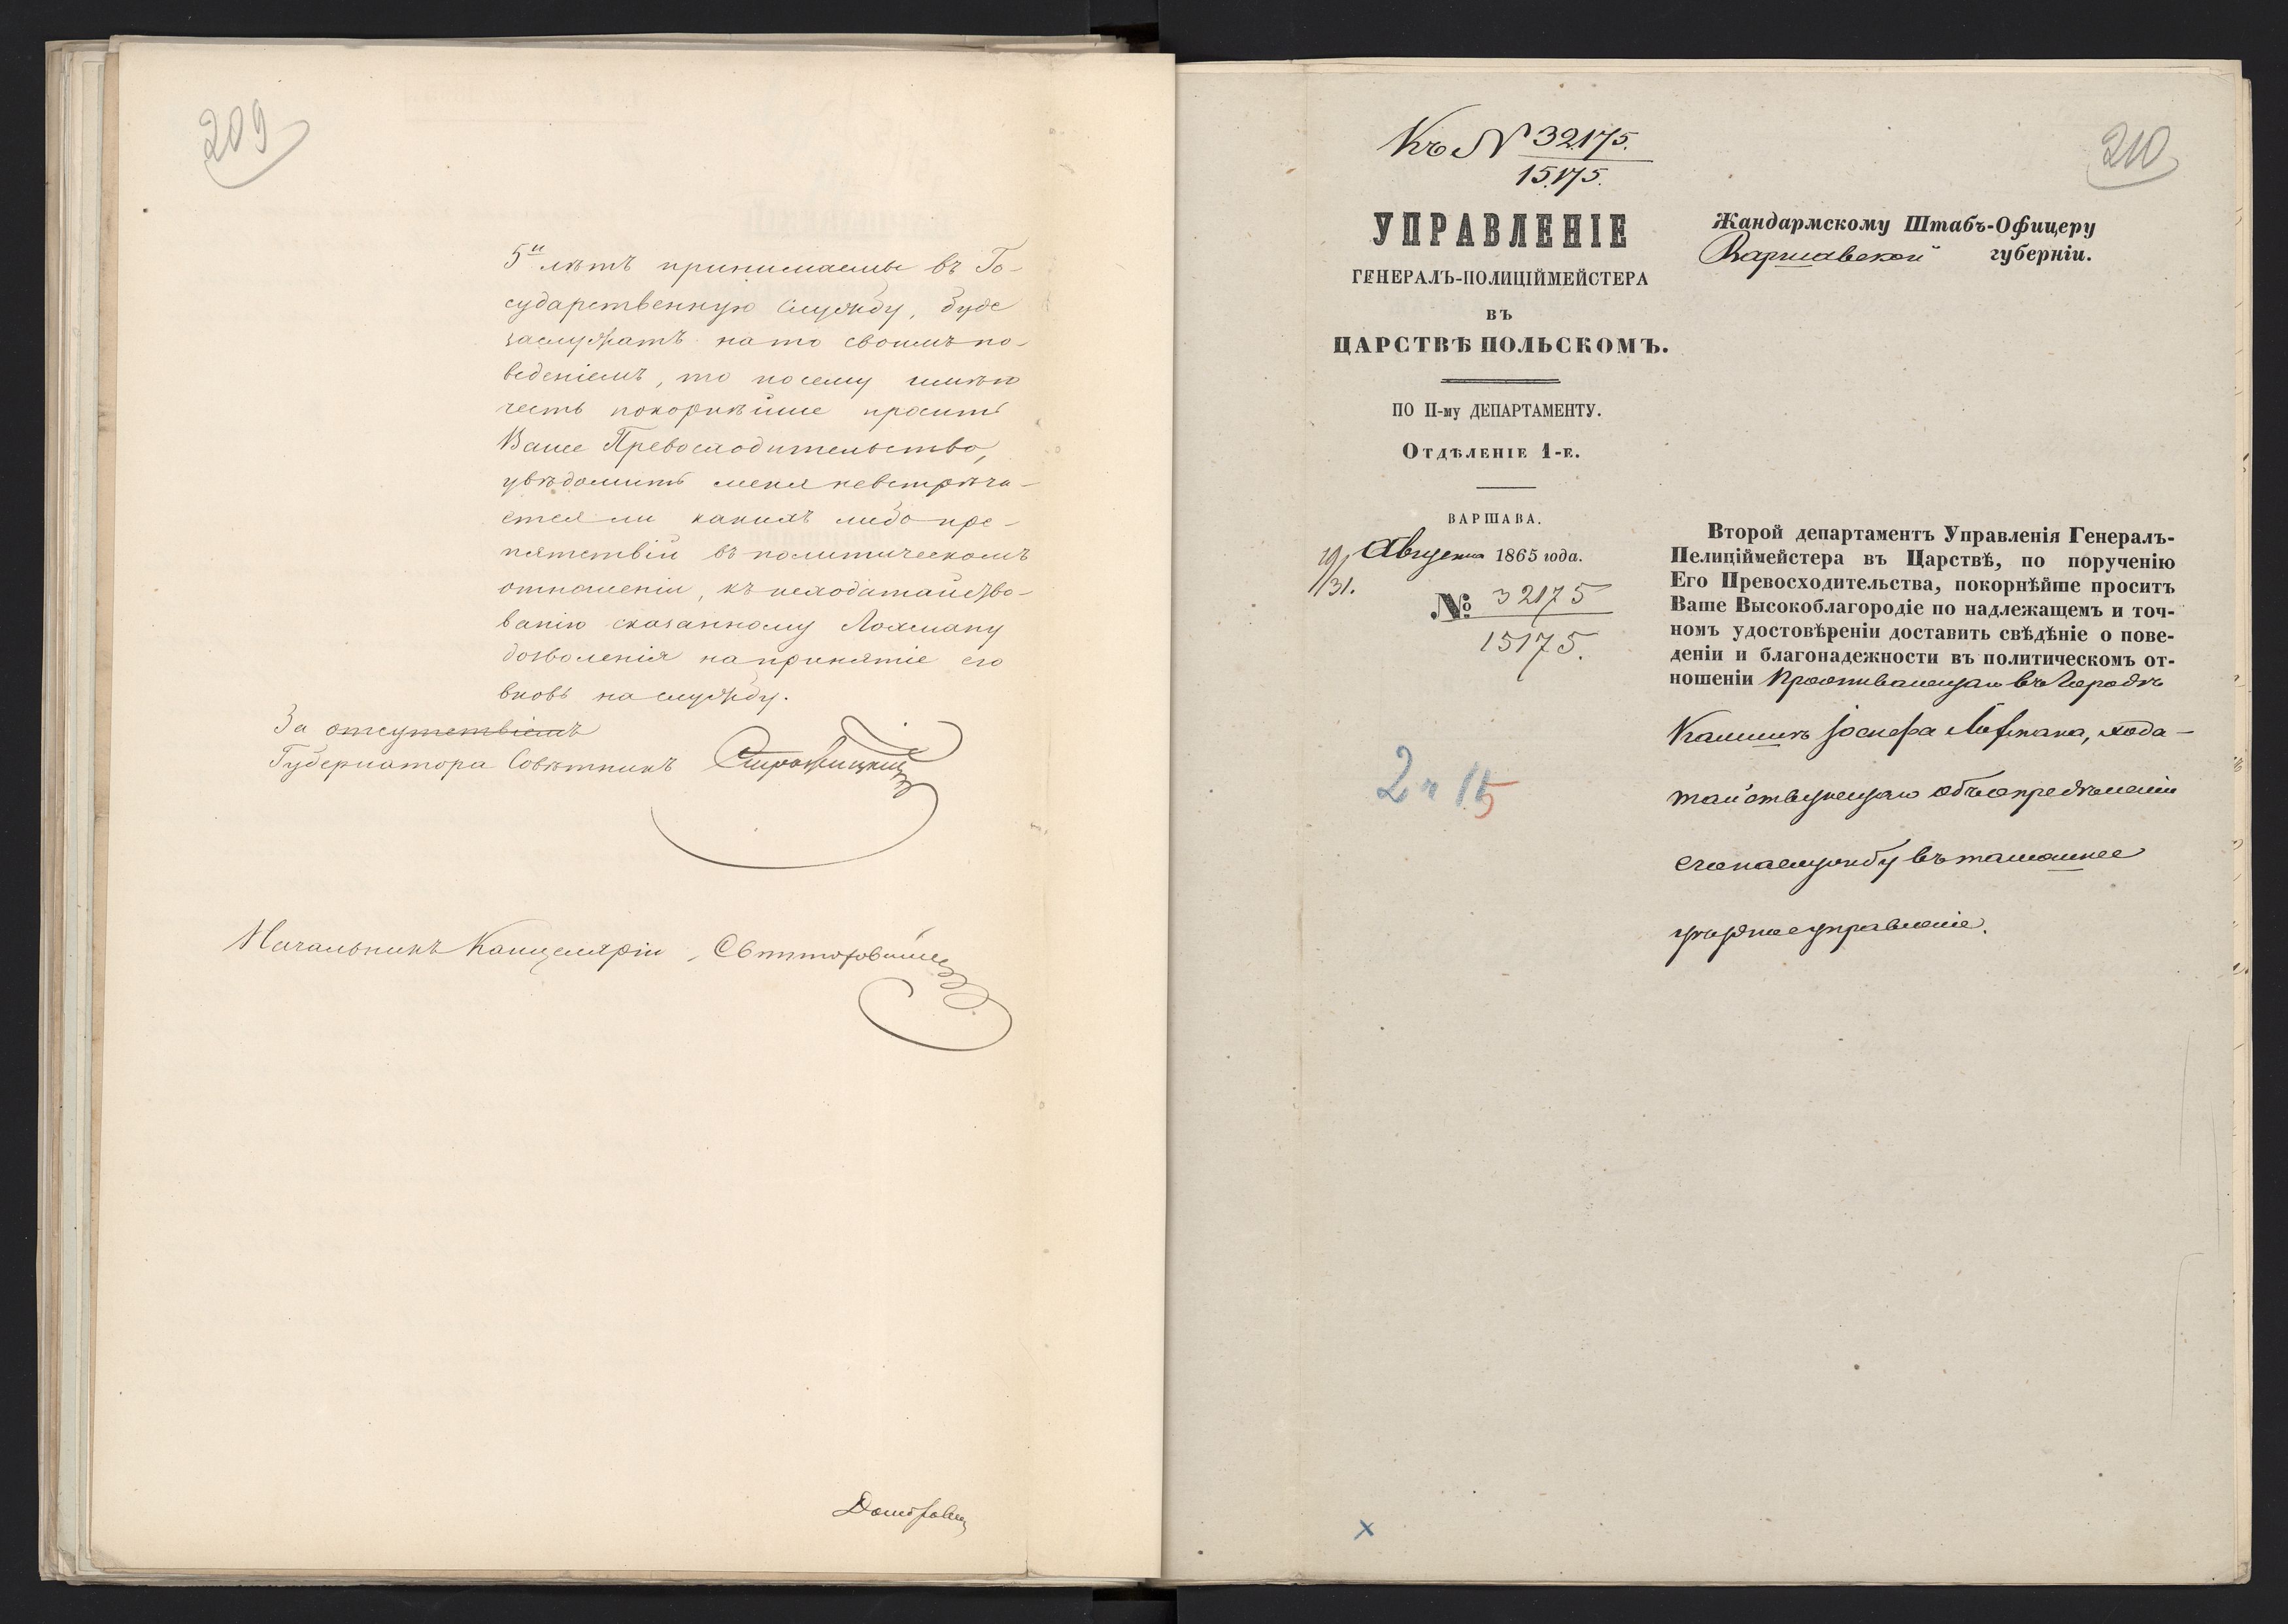 209
5и лѣтъ принимаемы въ Го-
сударственную службу, буде
заслужатъ на то своимъ по-
веденіемъ, то посему имѣю
честь покорнѣйше просить
Ваше Превосходительство,
увѣдомить меня невстрѣча-
ется ли какихъ либо пре-
пятствій въ политическомъ
отношеніи, къ исходатайство-
ванію сказанному Лохману
дозволенія на принятіе его
вновь на службу.
За отсутствіемъ
Губернатора Совѣтникъ
Начальникъ Канцеляріи
210
Къ № 32175.
15175.
УПРАВЛЕНІЕ
ГЕНЕРАЛЪ-ПОЛИЦІЙМЕЙСТЕРА
ВЪ
ЦАРСТВѢ ПОЛЬСКОМЪ.
ПО II-му ДЕПАРТАМЕНТУ.
Отдѣленіе 1-е.
ВАРШАВА.
19/31. Августа 1865 года.
№ 32175
15175.
2 ч 15
Жандармскому Штабъ-Офицеру
Варшавской губерніи.
Второй департаментъ Управленія Генералъ-
Пелиціймейстера въ Царствѣ, по порученію
Его Превосходительства, покорнѣйше проситъ
Ваше Высокоблагородіе по надлежащемъ и точ-
номъ удостовѣреніи доставить свѣдѣніе о пове-
деніи и благонадежности въ политическомъ от-
ношеніи Проживающаго въ Городѣ
Калишѣ Іосифа Лохмана, хода-
тайствующаго объ опредѣленіи
его на службу въ тамошнее
уѣздное управленіе.